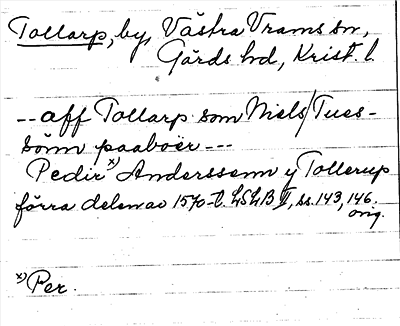 Tollarp, by, Västra Vrams sn,
Gärds hd, Krist. l.
-- aff Tollarp som Niels/Tues-
sönn paaboer ---
Pedir x) Anderssenn y Tollerup
förra delen av 1570-t. LSLB II, ss. 143, 146.
orig.
x) Per.